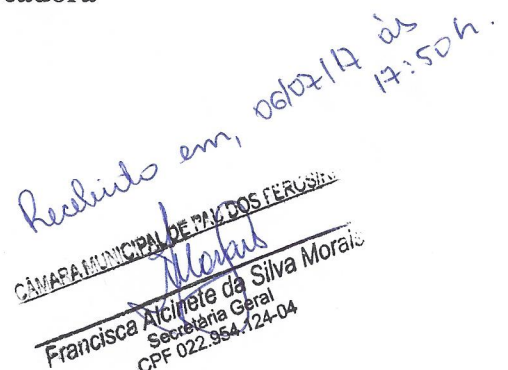 Recebido em, 06/07/17 às
17:50h.
CÂMARA MUNICIPAL DE PAU DOS FERROS/RN
Morais
Francisca Alcinete da Silva Morais
Secretária Geral
CPF 022.954.124-04